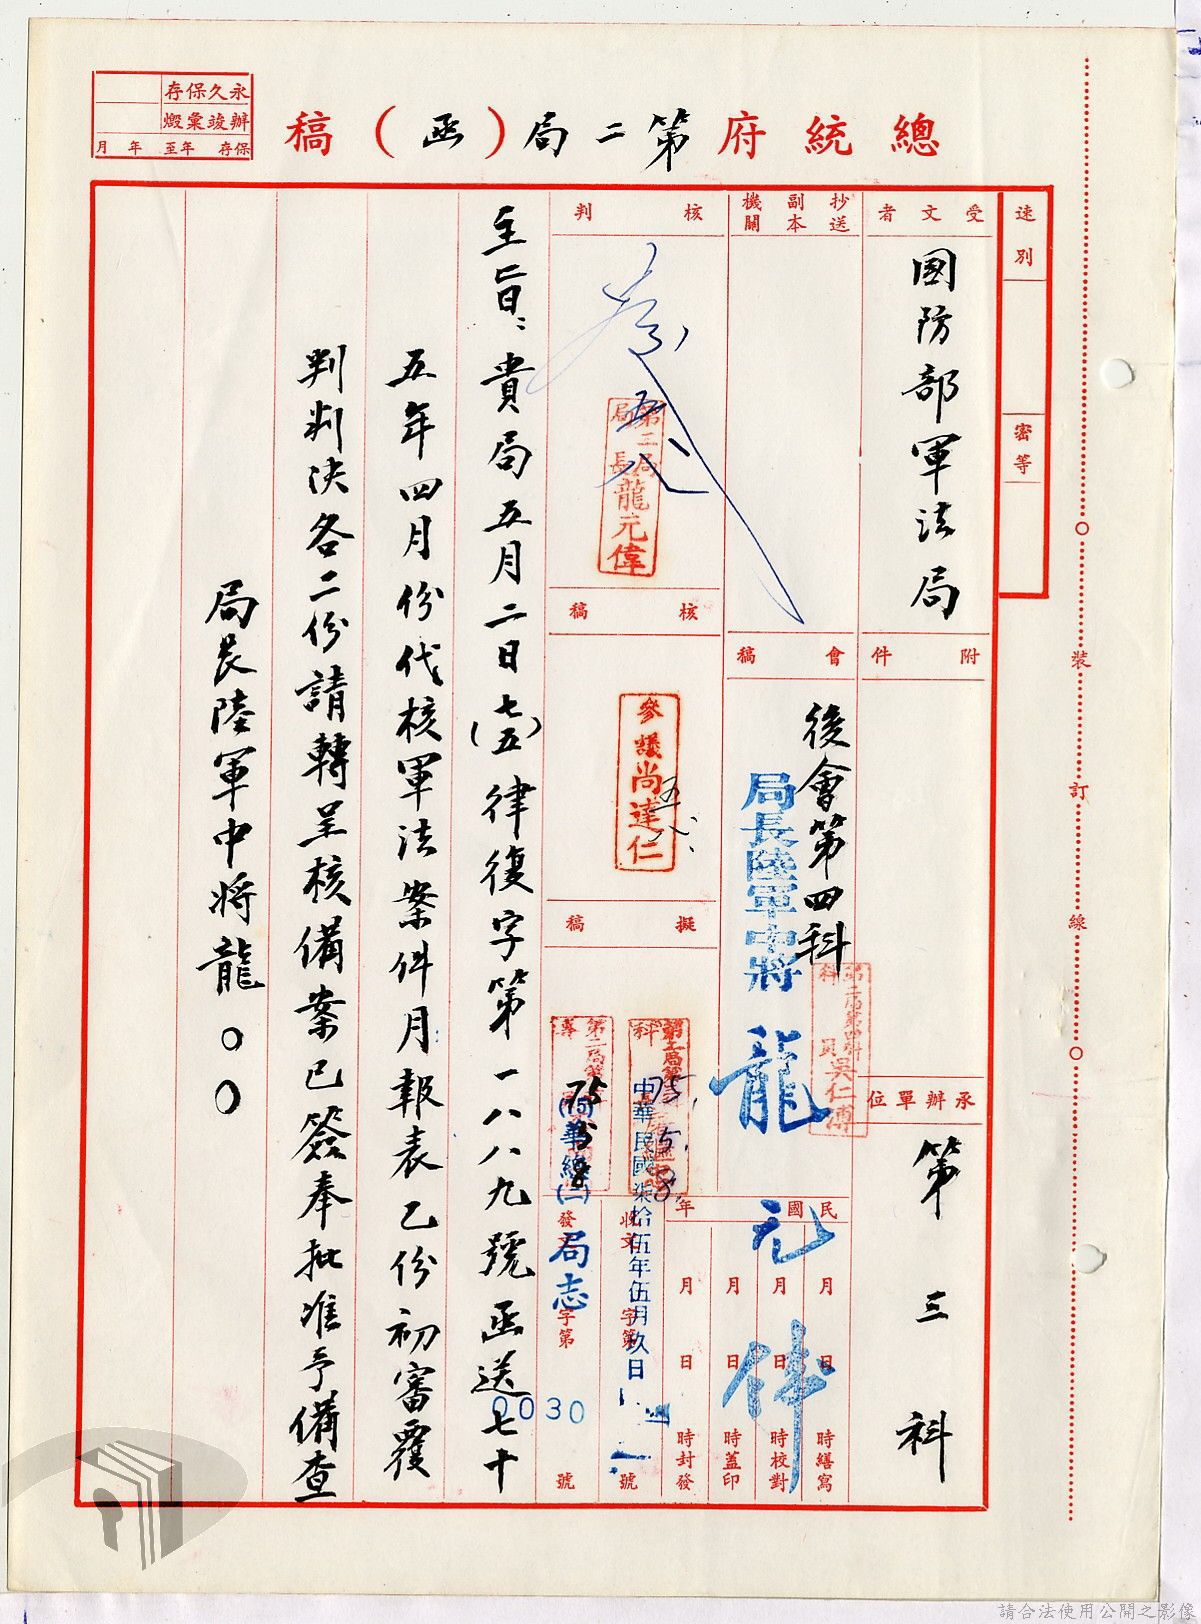 總統府第二局(函)稿
永久保存
辦竣彙燬
保存 年至 年 月
速別
密等
受文者
國防部軍法局
附件
承辦單位
第三科
抄送副本機關
會稿
後會第四科
局長陸軍中將龍元偉
第二局第四科科員吳仁溥
核判
五八
第二局局長龍元偉
核稿
參議尚達仁
五八
擬稿
75.5.8
75 5 8
民國 年
月 日 時繕寫
月 日 時校對
月 日 時蓋印
月 日 時封發
收文 字第 號
中華民國柒拾伍年伍月玖日
發文 字第 號
(75)華總(二)局志
0030
主旨：貴局五月二日(七五)律復字第一八八九號函送七十
五年四月份代核軍法案件月報表乙份初審覆
判判決各二份請轉呈核備案已簽奉批准予備查
局長陸軍中將龍○○
裝訂線
請合法使用公開之影像